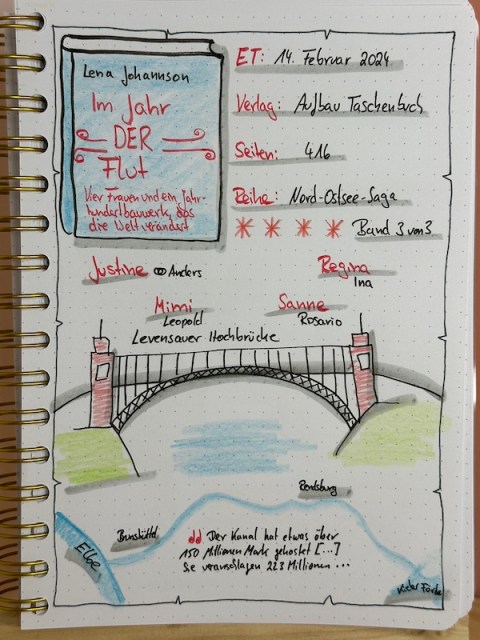 Lena Johannson
Im Jahr
DER
Flut
Vier Frauen und ein Jahr-
hundertbauwerk, das
die Welt verändert
ET: 14. Februar 2024
Verlag: Aufbau Taschenbuch
Seiten: 416
Reihe: Nord-Ostsee-Saga
Band 3 von 3
Justine ∞ Anders
Regina
Ina
Mimi
Leopold
Sanne
Rosario
Levensauer Hochbrücke
Rendsburg
Brunsbüttel
Elbe
Der Kanal hat etwas über
150 Millionen Mark gekostet [...]
Sie veranschlagen 223 Millionen ...
Kieler Förde